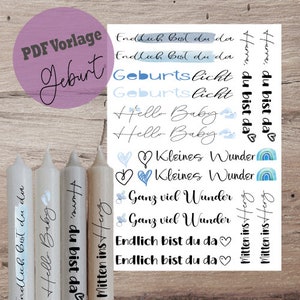 PDF Vorlage
Geburt
Endlich bist du da
Endlich bist du da
Geburtslicht
Geburtslicht
Hello Baby
Hello Baby
Kleines Wunder
Kleines Wunder
Ganz viel Wunder
Ganz viel Wunder
Endlich bist du da
Endlich bist du da
Hurra,
du bist da
Hurra,
du bist da
Mitten ins Herz
Mitten ins Herz
Endlich bist du da
Hello Baby
Hurra,
du bist da
Mitten ins Herz